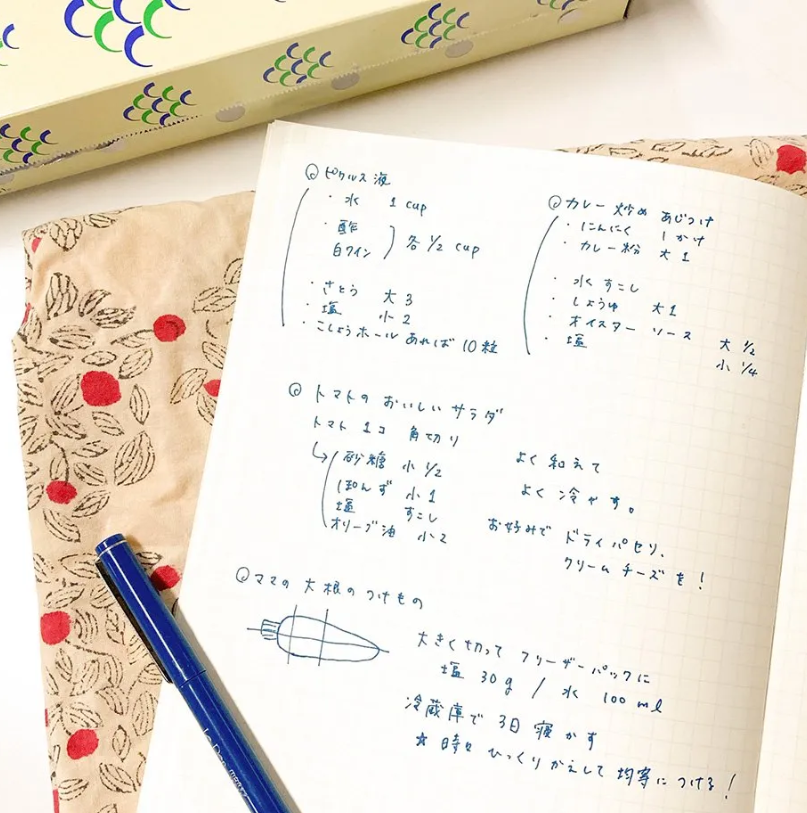 ピクルス液
・水 1 cup
・酢
白ワイン 各 1/2 cup
・さとう 大 3
・塩 小 2
・こしょうホール あれば 10粒
カレー炒め あじつけ
・にんにく 1かけ
・カレー粉 大 1
・水 すこし
・しょうゆ 大1
・オイスター ソース 大 1/2
・塩 小 1/4
トマトの おいしい サラダ
トマト 1コ 角切り
砂糖 小 1/2
ぽんず 小 1
塩 すこし
オリーブ油 小 2
よく 和えて
よく 冷やす。
お好みで ドライパセリ、
クリームチーズを!
ママの 大根の つけもの
大きく切って フリーザーパックに
塩 30g / 水 100ml
冷蔵庫で 3日 寝かす
☆ 時々 ひっくりかえして 均等につける!
Le Pen